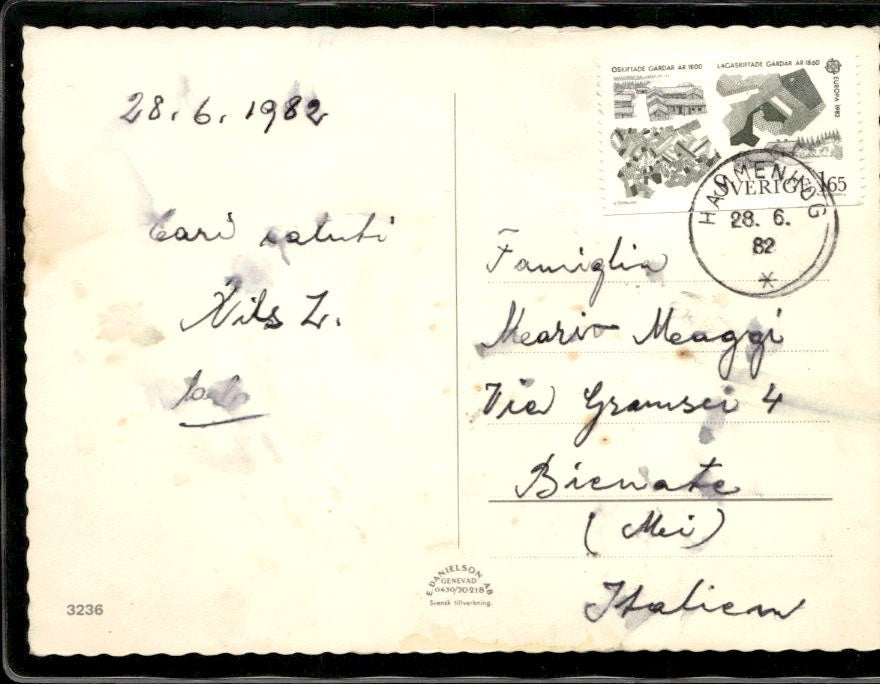 28.6.1982
Cari saluti
Nils L.
OSKIFTADE GÅRDAR ÅR 1800
LAGASKIFTADE GÅRDAR ÅR 1860
EUROPA 1982
SVERIGE 165
HAMMENHÖG
28. 6.
82
Famiglia
Mario Meaggi
Via Gramsci 4
Bienate
(Mi)
Italien
E. DANIELSON AB
GENEVAD
0430/70218
Svensk tillverkning.
3236